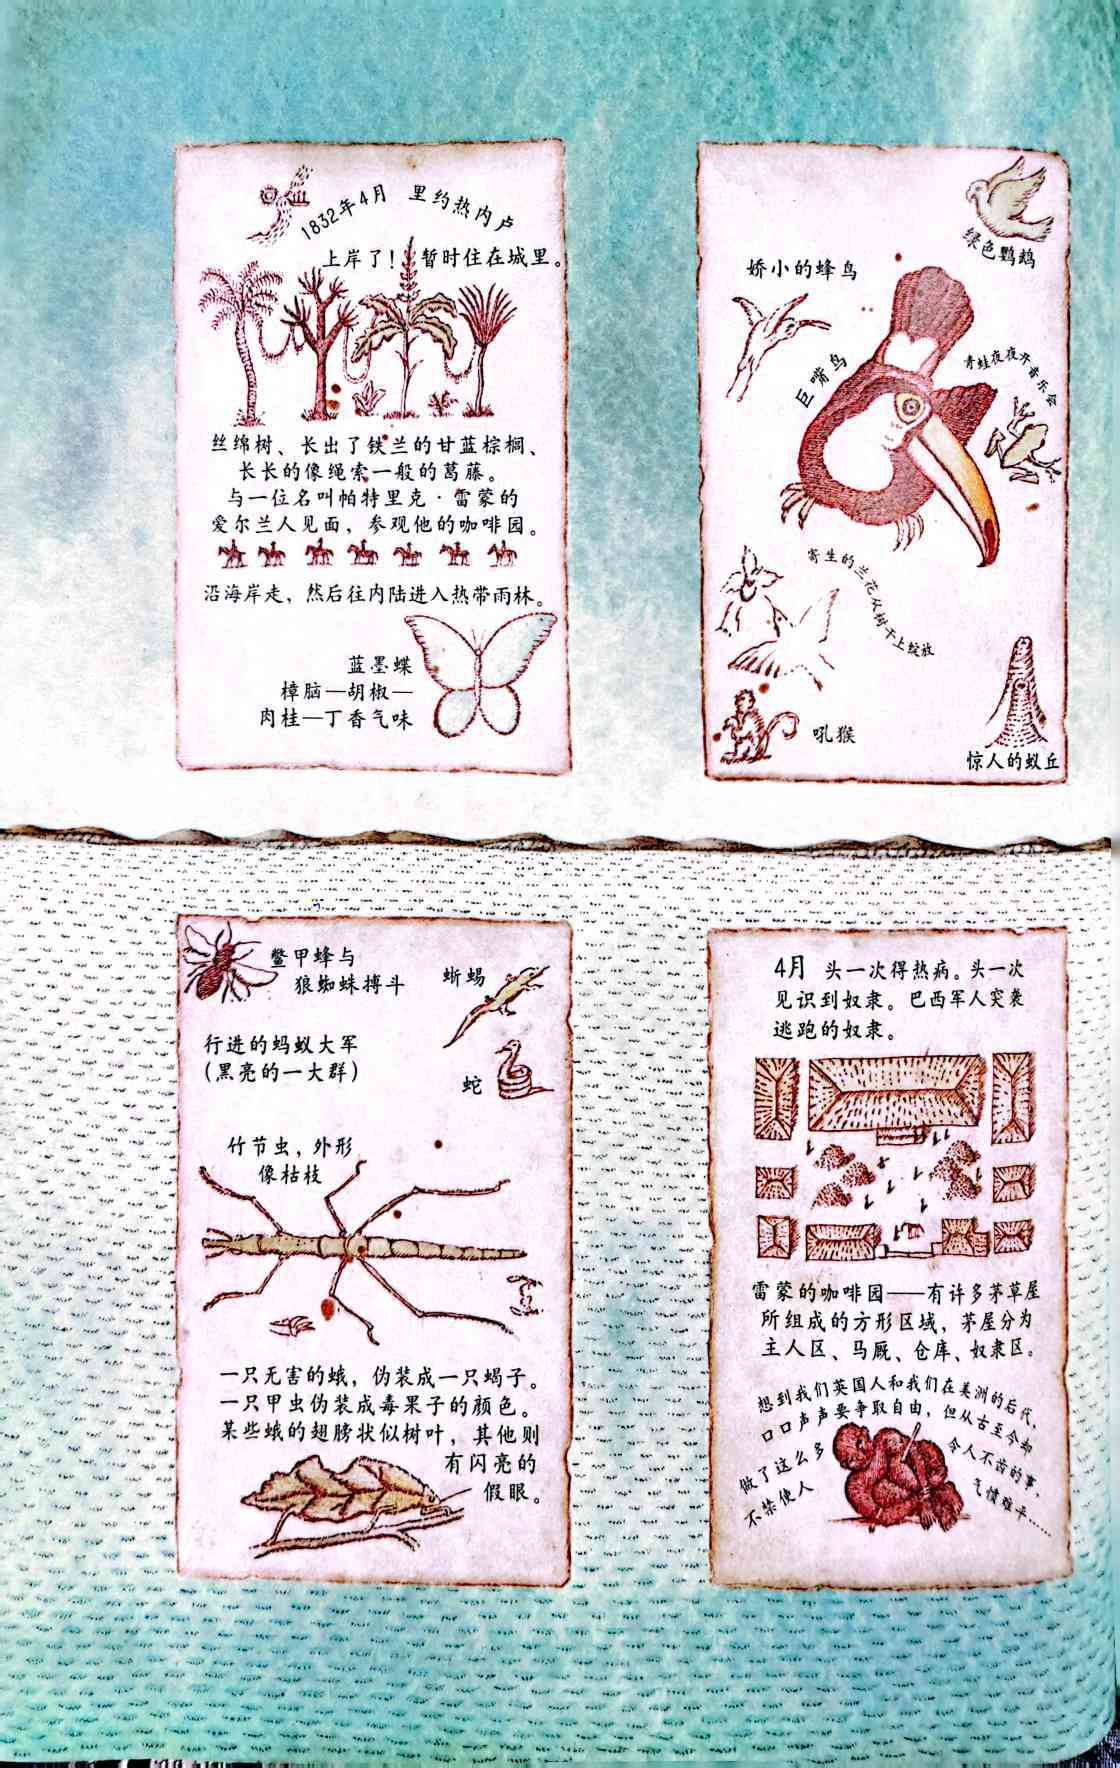 1832年4月 里约热内卢
上岸了！暂时住在城里。
丝绵树、长出了铁兰的甘蓝棕榈、
长长的像绳索一般的葛藤。
与一位名叫帕特里克·雷蒙的
爱尔兰人见面，参观他的咖啡园。
沿海岸走，然后往内陆进入热带雨林。
蓝墨蝶
樟脑—胡椒—
肉桂—丁香气味
绿色鹦鹉
娇小的蜂鸟
巨嘴鸟
青蛙夜夜开音乐会
寄生的兰花从树干上绽放
吼猴
惊人的蚁丘
鳖甲蜂与
狼蜘蛛搏斗
蜥蜴
行进的蚂蚁大军
（黑亮的一大群）
蛇
竹节虫，外形
像枯枝
一只无害的蛾，伪装成一只蝎子。
一只甲虫伪装成毒果子的颜色。
某些蛾的翅膀状似树叶，其他则
有闪亮的
假眼。
4月 头一次得热病。头一次
见识到奴隶。巴西军人突袭
逃跑的奴隶。
雷蒙的咖啡园——有许多茅草屋
所组成的方形区域，茅屋分为
主人区、马厩、仓库、奴隶区。
想到我们英国人和我们在美洲的后代，
口口声声要争取自由，但从古至今却
做了这么多
令人不齿的事，
不禁使人
气愤难平……